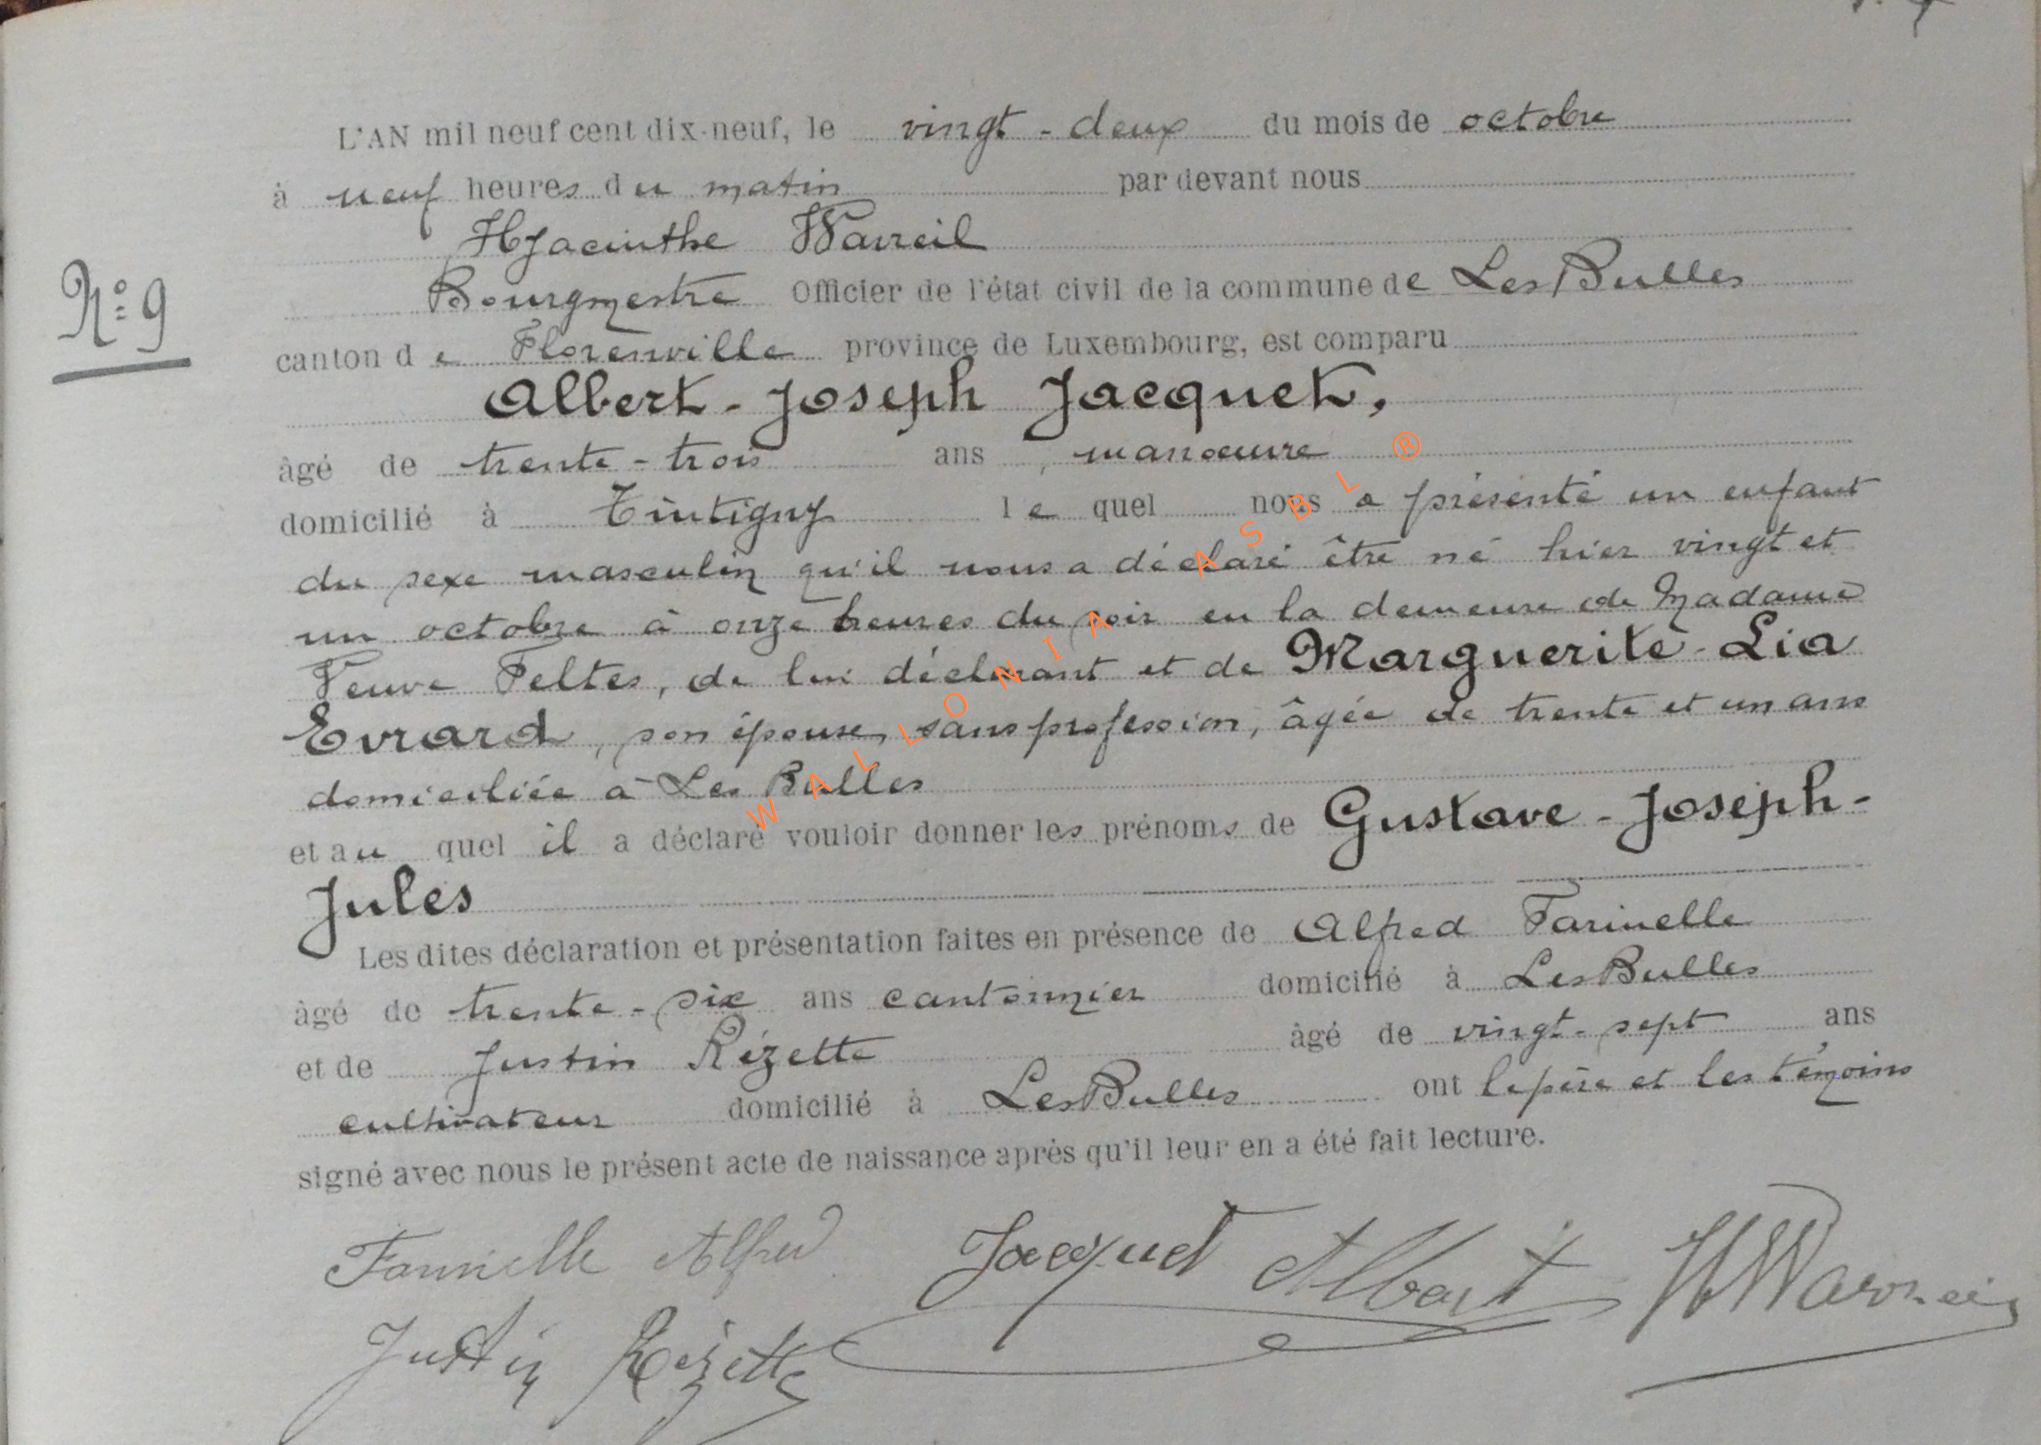 L'AN mil neuf cent dix-neuf, le vingt-deux du mois de octobre
à neuf heures du matin par devant nous
Hyacinthe Warreil
Bourgmestre Officier de l'état civil de la commune de Les Bulles
N° 9
canton de Florenville province de Luxembourg, est comparu
Albert-Joseph Jacquet,
âgé de trente-trois ans, manoeuvre
domicilié à Tintigny le quel nous a présenté un enfant
du sexe masculin qu'il nous a déclaré être né hier vingt et
un octobre à onze heures du soir en la demeure de Madame
Veuve Feltes, de lui déclarant et de Marguerite-Lia
Evrard, son épouse, sans profession, âgée de trente et un ans
domiciliée à Les Bulles
et au quel il a déclaré vouloir donner les prénoms de Gustave-Joseph-
Jules
Les dites déclaration et présentation faites en présence de Alfred Farinelle
âgé de trente-six ans cantonnier domicilié à Les Bulles
et de Justin Rézette âgé de vingt-sept ans
cultivateur domicilié à Les Bulles ont le père et les témoins
signé avec nous le présent acte de naissance après qu'il leur en a été fait lecture.
Farinelle Alfred Jacquet Albert
Justin Rézette
WALLONIA ASBL ®